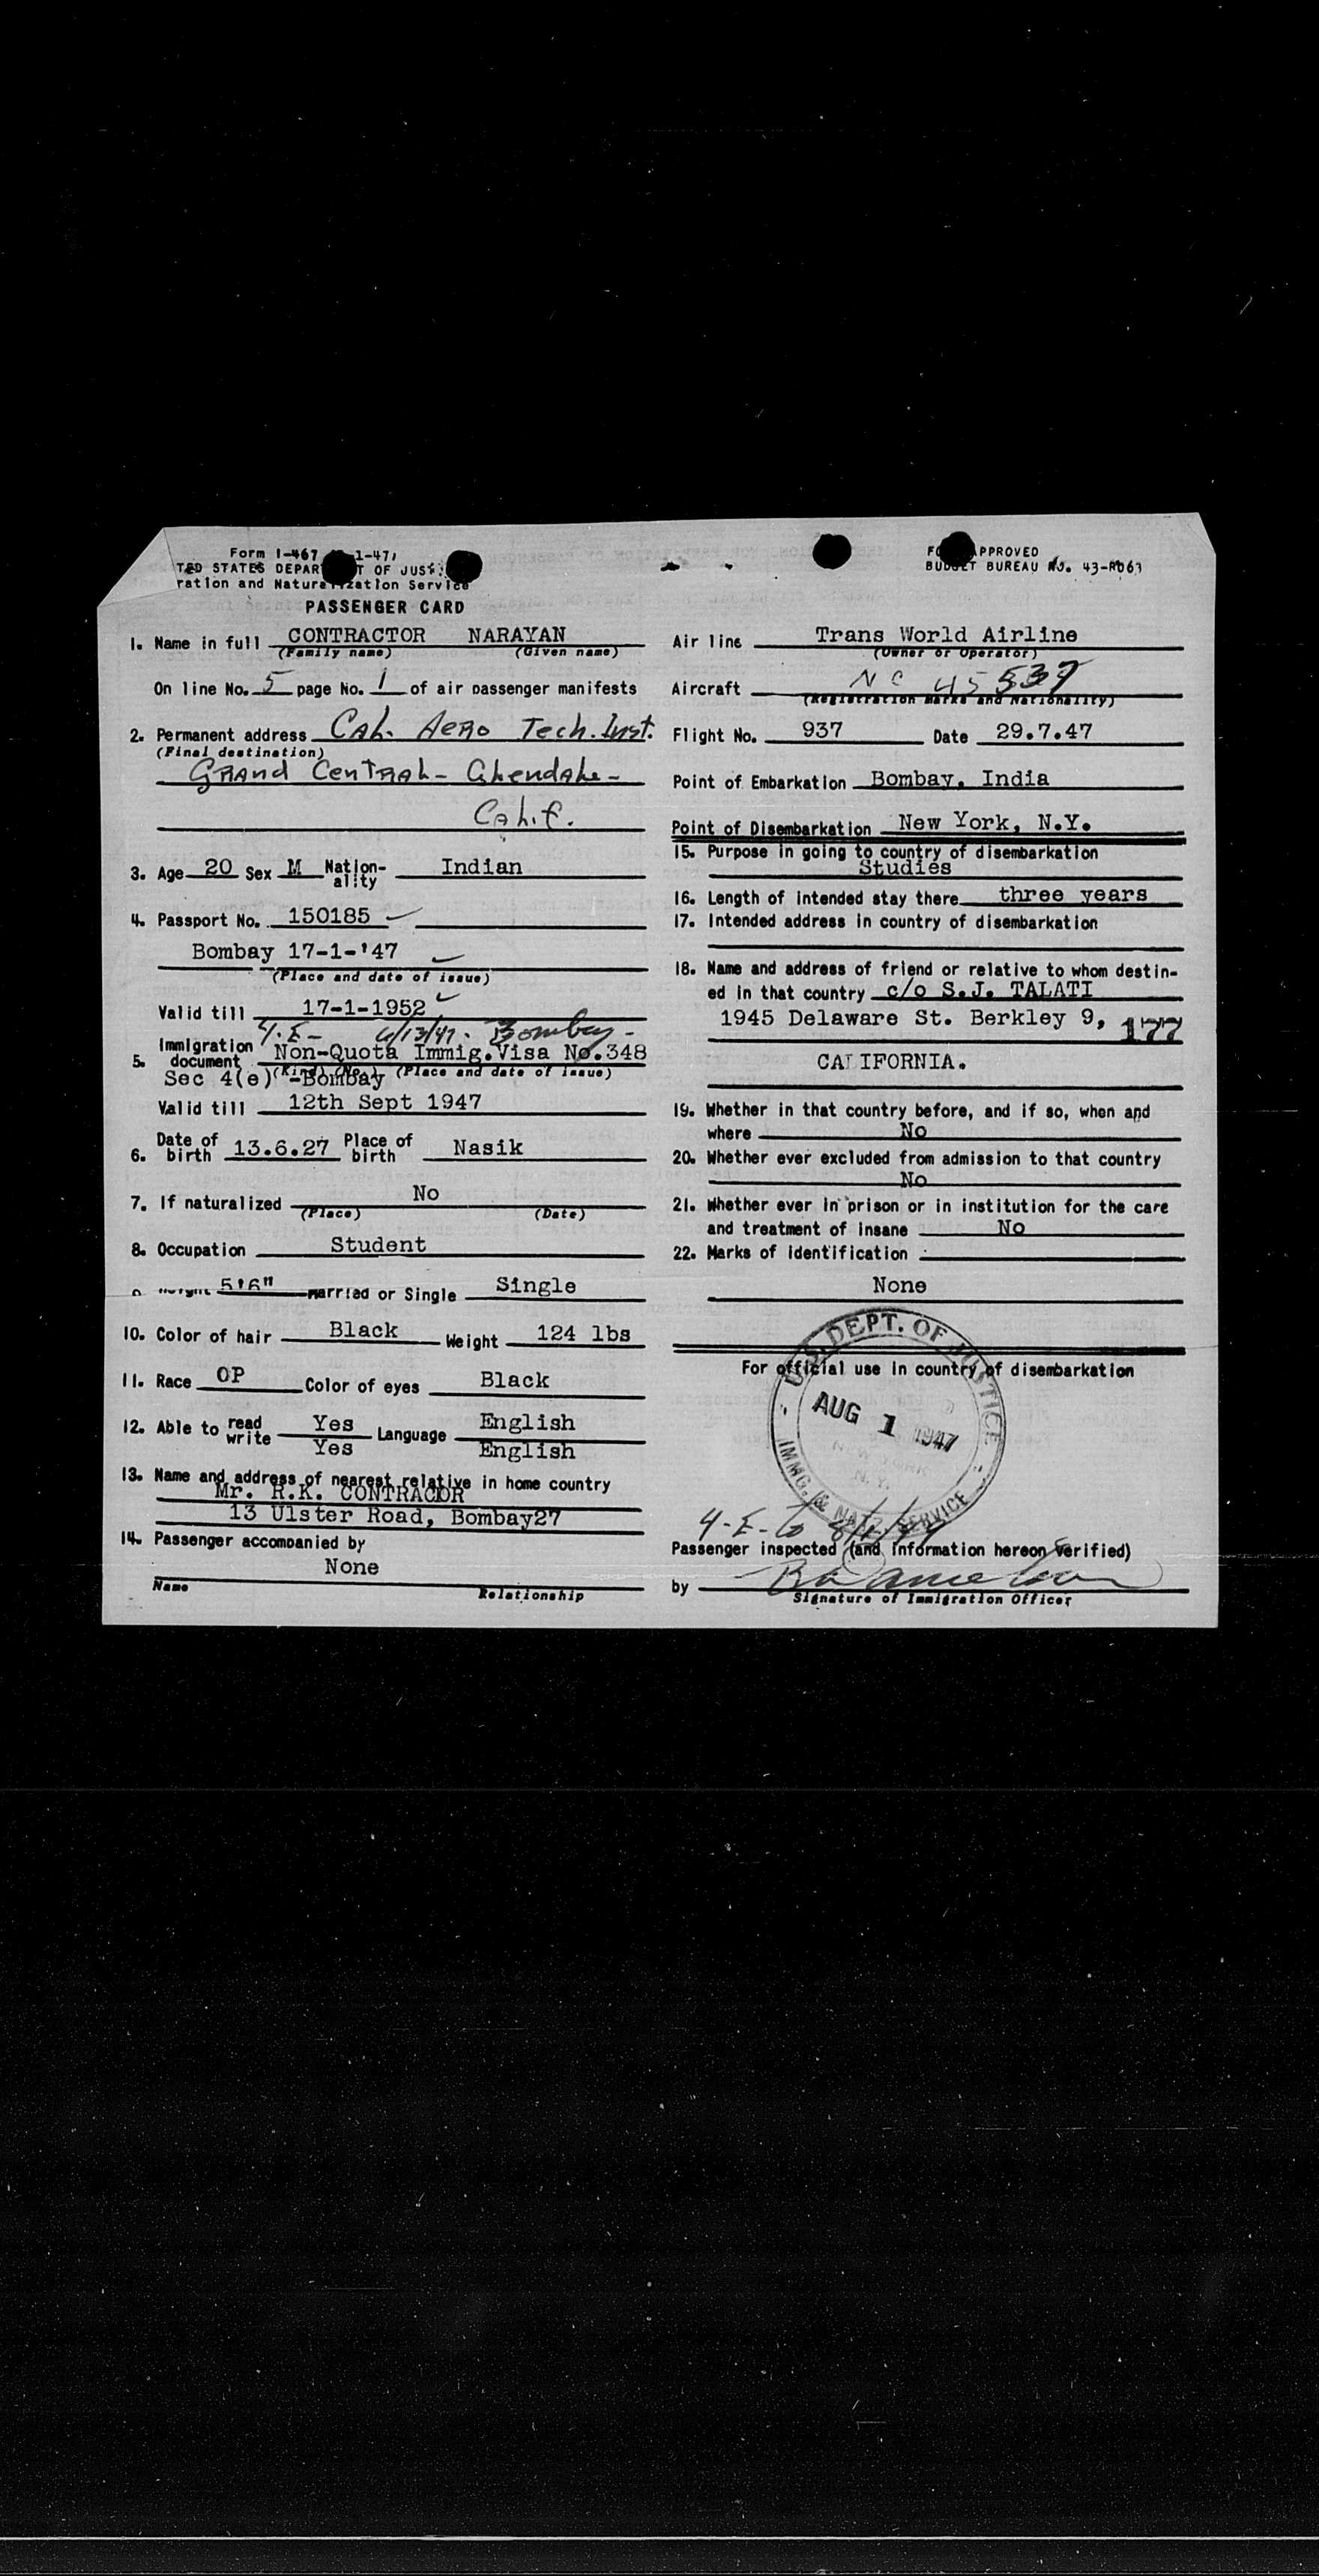 Form I-467 1-47,
TED STATES DEPAR T OF JUST
ration and Naturalization Service
PASSENGER CARD
1. Name in full CONTRACTOR NARAYAN
(Family name) (Given name)
On line No. 5 page No. 1 of air passenger manifests
2. Permanent address Cal. Aero Tech. Inst.
(Final destination)
Grand Central - Glendale -
Calif.
3. Age 20 Sex M Nation-ality Indian
4. Passport No. 150185
Bombay 17-1-'47
(Place and date of issue)
Valid till 17-1-1952
4-E- 6/13/47. Bombay -
5. Immigration document Non-Quota Immig.Visa No.348
(Kind) (No.) (Place and date of issue)
Sec 4(e) -Bombay
Valid till 12th Sept 1947
6. Date of birth 13.6.27 Place of birth Nasik
7. If naturalized No
(Place) (Date)
8. Occupation Student
5'6" Married or Single Single
10. Color of hair Black Weight 124 lbs
11. Race OP Color of eyes Black
12. Able to read Yes Language English
write Yes English
13. Name and address of nearest relative in home country
Mr. R.K. CONTRACOR
13 Ulster Road, Bombay27
14. Passenger accompanied by
None
Name Relationship
FO APPROVED
BUDGET BUREAU NO. 43-R061
Air line Trans World Airline
(Owner or Operator)
Aircraft NC 45537
(Registration marks and Nationality)
Flight No. 937 Date 29.7.47
Point of Embarkation Bombay, India
Point of Disembarkation New York, N.Y.
15. Purpose in going to country of disembarkation
Studies
16. Length of intended stay there three years
17. Intended address in country of disembarkation
18. Name and address of friend or relative to whom destin-
ed in that country c/o S.J. TALATI
1945 Delaware St. Berkley 9, 177
CALIFORNIA.
19. Whether in that country before, and if so, when and
where No
20. Whether ever excluded from admission to that country
No
21. Whether ever in prison or in institution for the care
and treatment of insane No
22. Marks of identification
None
For official use in country of disembarkation
U.S. DEPT. OF JUSTICE
AUG 1 1947
NEW YORK
N.Y.
IMMG. & NATZ. SERVICE
4-E-to 8/1/49
Passenger inspected (and information hereon verified)
by
Signature of Immigration Officer